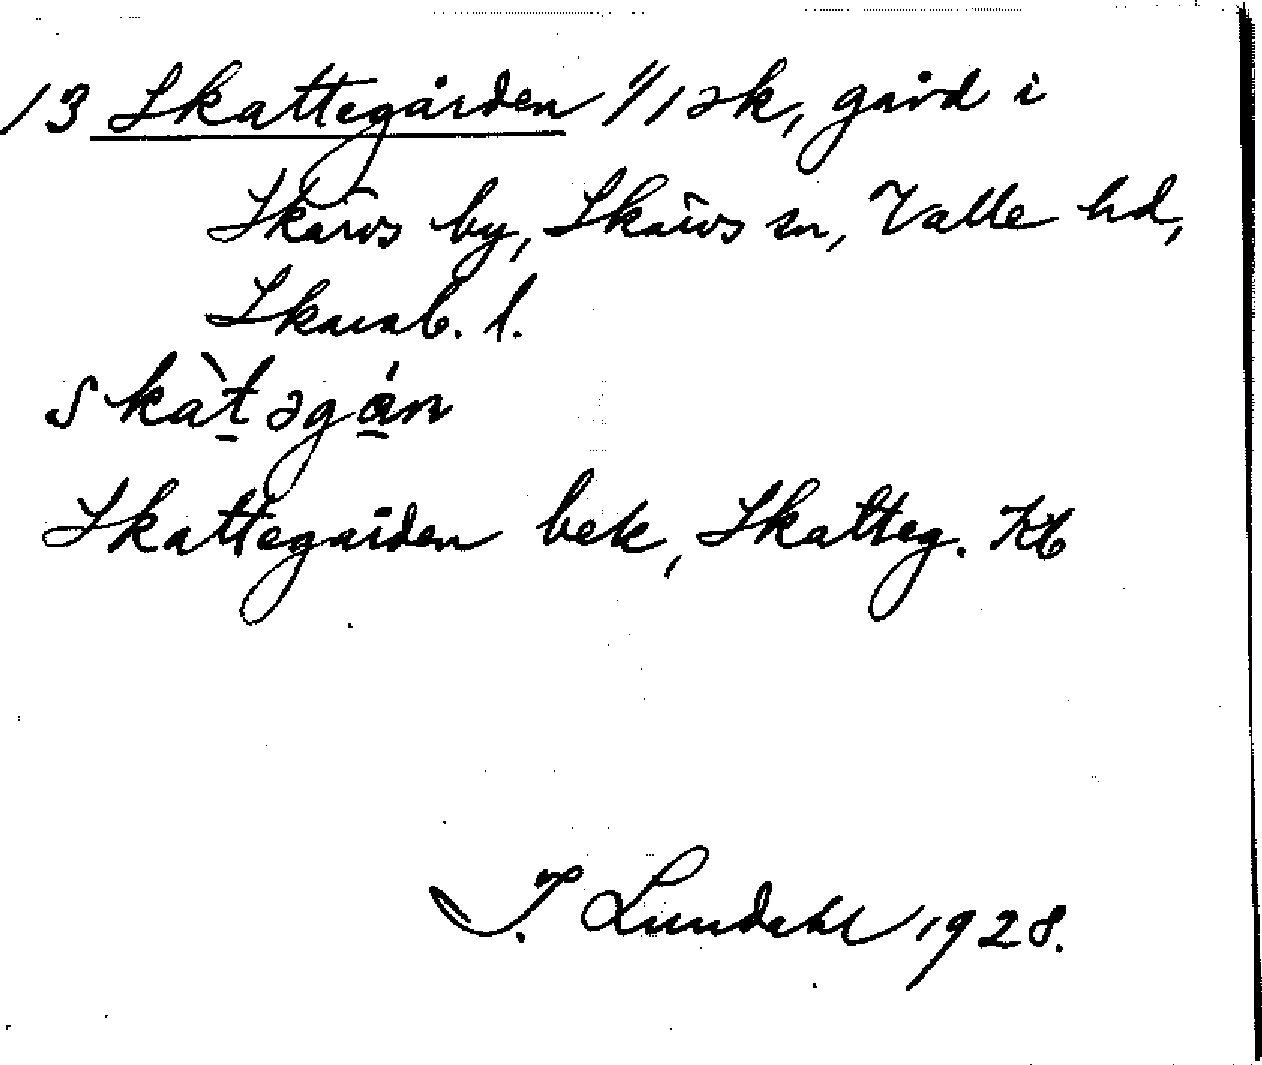 13 Skattegården 1/1 sk, gård i
Skärvs by, Skärvs sn, Valle hd,
Skarab. l.
skàt əgán
Skattegården bek, Skatteg. Kb
I. Lundahl 1928.